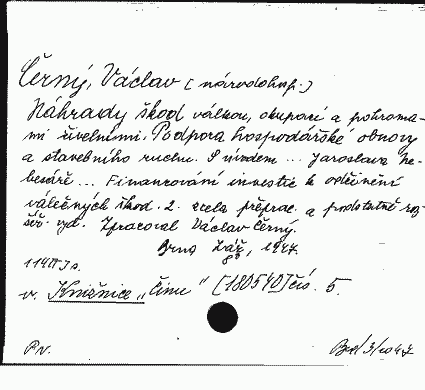 Černý, Václav [národohosp.]
Náhrady škod válkou, okupací a pohroma-
mi živelními. Podpora hospodářské obnovy
a stavebního ruchu. S úvodem ... Jaroslava Ne-
besáře ... Financování investic k odčinění
válečných škod. 2. zcela přeprac. a podstatně roz-
šíř. vyd. Zpracoval Václav Černý.
Brno, 1947.
v. Knižnice „Činu" [180540] čís. 5.
Pv.